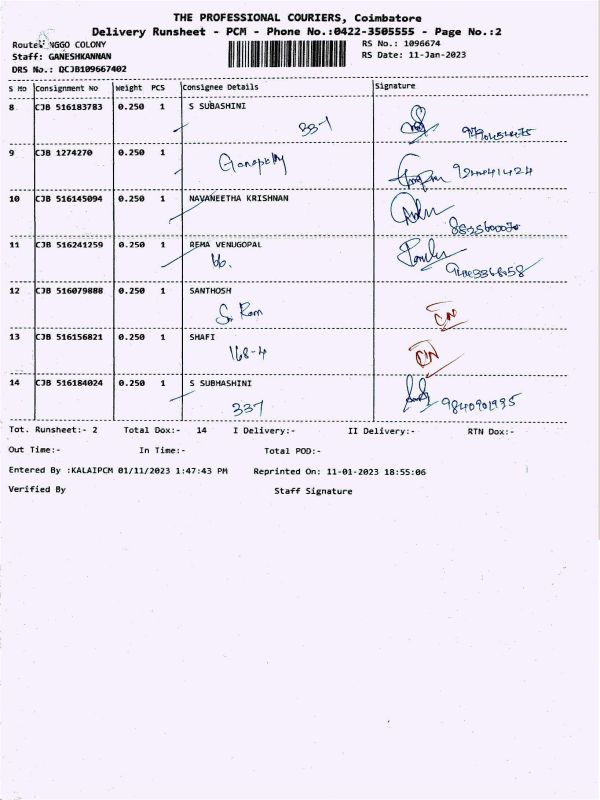 THE PROFESSIONAL COURIERS, Coimbatore
Delivery Runsheet - PCM - Phone No.:0422-3505555 - Page No.:2
Route: NGGO COLONY
RS No.: 1096674
Staff: GANESHKANNAN
RS Date: 11-Jan-2023
DRS No.: QCJB109667402
S No Consignment No Weight PCS Consignee Details Signature
8 CJB 516183783 0.250 1 S SUBASHINI
33-1
9 CJB 1274270 0.250 1
10 CJB 516145094 0.250 1 NAVANEETHA KRISHNAN
11 CJB 516241259 0.250 1 REMA VENUGOPAL
66.
12 CJB 516079888 0.250 1 SANTHOSH
CN
13 CJB 516156821 0.250 1 SHAFI
168-4 CN
14 CJB 516184024 0.250 1 S SUBHASHINI
337 9840901995
Tot. Runsheet:- 2 Total Dox:- 14 I Delivery:- II Delivery:- RTN Dox:-
Out Time:- In Time:- Total POD:-
Entered By :KALAIPCM 01/11/2023 1:47:43 PM Reprinted On: 11-01-2023 18:55:06
Verified By Staff Signature